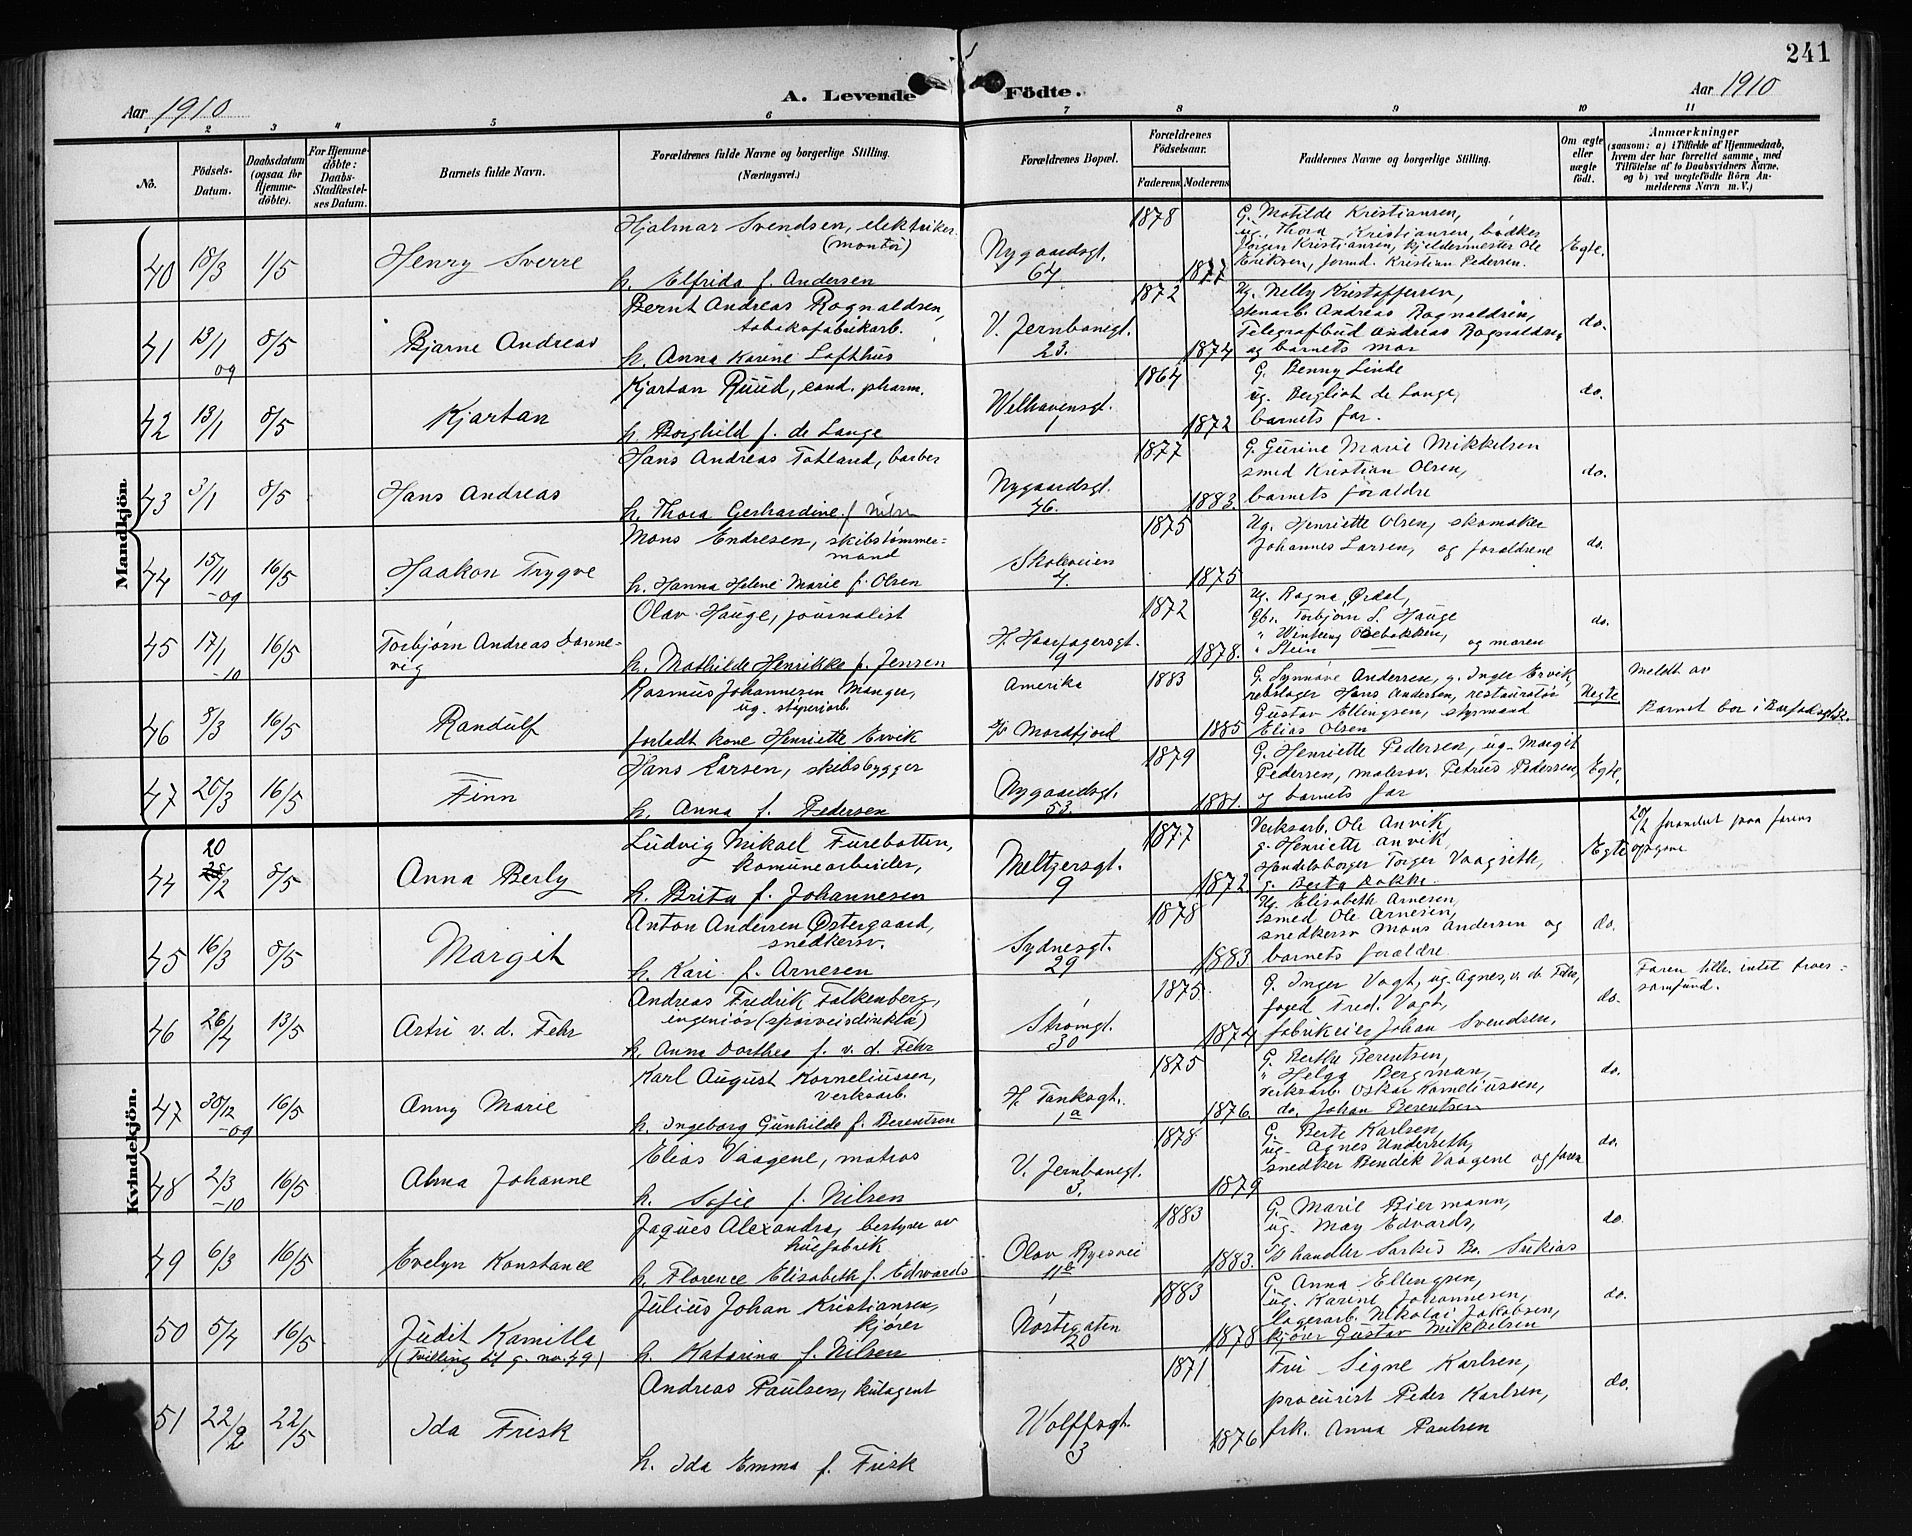 241
Aar 1910
A. Levende Födte.
Aar 1910
1 2 3 4 5 6 7 8 9 10 11
No.
Födsels-Datum.
Daabsdatum (ogsaa for Hjemme-döbte).
For Hjemme-döbte: Daabs-Stadfæstel-ses Datum.
Barnets fulde Navn.
Forældrenes fulde Navne og borgerlige Stilling.
(Næringsvei.)
Forældrenes Bopæl.
Forældrenes Födselsaar.
Faderens. Moderens.
Faddernes Navne og borgerlige Stilling.
Om ægte eller uægte födt.
Anmærkninger
(saasom: a) i Tilfælde af Hjemmedaab, hvem der har forrettet samme, med Tilföielse af to Daabsvidners Navne, og b) ved uægtefödte Börn An-melderens Navn m. V.)
Mandkjön.
40 18/3 1/5 Henry Sverre
Hjalmar Svendsen, elektriker (montör)
h. Elfrida f. Andersen
Nygaardsgt. 67
1878 1877
G. Matilde Kristiansen,
ug. Thora Kristiansen, bødker
Jørgen Kristiansen, kjeldermester Ole
Eriksen, formd. Kristian Pedersen.
Egte.
41 13/1 09 8/5 Bjarne Andreas
Bernt Andreas Rognaldsen, tobaksfabrikarb.
h. Anna Karine Lofthus
V. Jernbanegt. 23.
1872 1874
Ug. Nelly Kristoffersen,
stenarb. Andreas Rognaldsen,
Telegrafbud Andreas Rognaldsen
og barnets mor
do.
42 13/1 8/5 Kjartan
Kjartan Ruud, cand. pharm.
h. Borghild f. de Lange
Welhavensgt. 1
1864 1872
G. Benny Linde
ug. Bergliot de Lange,
barnets far.
do.
43 3/1 8/5 Hans Andreas
Hans Andreas Totland, barber
h. Thora Gerhardine f. Nilsen
Nygaardsgt. 46.
1877 1883.
G. Gurine Marie Mikkelsen
smed Kristian Olsen,
barnets foraldre
do.
44 15/11 -09 16/5 Haakon Trygve
Mons Endresen, skibstømmer=mand
h. Hanna Helene Marie f. Olsen
Skoleveien 4.
1875 1875
Ug. Henriette Olsen, skomaker
Johannes Larsen, og foraldrene
do.
45 17/1 -10 16/5 Torbjørn Andreas Danne-vig
Olav Hauge, journalist
h. Mathilde Henrikke f. Jensen
H. Haarfagersgt. 9
1872 1878.
Ug. Ragna Ørdal,
Gbr. Torbjørn S. Hauge
" Stein — og moren
do.
46 8/3 16/5 Randulf
Rasmus Johannesen Manger, ug. støperiarb.
forladt kone Henriette Ervik
Amerika
1883 1885
G. Synnøve Andersen, g. Inger Ervik
rebslager Hans Andersen, restauratør
Gustav Ellingsen, styrmand
Elias Olsen
Uegte
Meldt av
47 20/3 16/5 Finn
Hans Larsen, skibsbygger
h. Anna f. Pedersen
Nygaardsgt. 53.
1879 1881.
G. Henriette Pedersen, ug. Margit
Pedersen, malersv. Petrus Pedersen,
og barnets far
Egte.
Kvindekjön.
44 20/2 8/5 Anna Berly
Ludvig Mikael Furebotten, komunearbeider,
h. Brita f. Johannesen
Meltzersgt. 9
1877 1872.
Verksarb. Ole Anvik
g. Henriette Anvik,
Handelsborger Torger Vaagseth,
g. Berta Kokke.
Egte
20/2 forandret paa farens opgave
45 16/3 8/5 Margit
Anton Andersen Østergaard, snedkersv.
h. Kari f. Arnesen
Sydnesgt. 29
1878 1883
Ug. Elisabeth Arnesen,
smed Ole Arnesen,
snedkersv Mons Andersen og
barnets foraldre.
do.
46 26/4 13/5 Astri v. d. Fehr
Andreas Fredrik Falkenberg, ingeniør (sporveisdirektør)
h. Anna Dorthea f. v. d. Fehr
Strømgt. 30
1875. 1874
G. Inger Vogt, ug. Agnes v. d. Fehr,
foged Fred. Vogt,
fabrikeier Johan Svendsen,
do.
Faren tilh. intet troes=samfund.
47 30/12 -09 16/5 Anny Marie
Karl August Korneliussen, verksarb.
h. Ingeborg Gunhilde f. Berentsen
H. Tanksgt. 1a
1875 1876.
G. Berthe Berentsen,
" Helga Bergman,
verksarb. Oskar Korneliussen,
do. Johan Berentsen
do.
48 2/3 -10 16/5 Alma Johanne
Elias Vaagene, matros
h. Sofie f. Nilsen
V. Jernbanegt. 3.
1878 1879
G. Berte Karlsen,
ug. Agnes Underseth,
snedker Bendik Vaagene og faren
do.
49 6/3 16/5 Evelyn Konstance
Jaques Alexandra, bestyrer av huefabrik
h. Florence Elisabeth f. Edwards
Olav Ryesvei 11b
1883 1883.
G. Marie Biermann,
ug. May Edvards,
handler Sarkis Bo. Sukias
do.
50 5/4 16/5 Judit Kamilla
(Tvilling til g. no. 49)
Julius Johan Kristiansen, kjører
h. Katarina f. Nilsen
Nøstegaten 20
1883 1878
G. Anna Ellingsen,
ug. Karine Johannesen,
lagerarb. Nikolai Jakobsen,
kjører Gustav Mikkelsen
do.
51 22/2 22/5 Ida Frisk
Andreas Paulsen, kulagent
h. Ida Emma f. Frisk
Wolffsgt. 3
1871 1876
Fru Signe Karlsen,
procurist Peder Karlsen,
frk. Anna Paulsen
do.